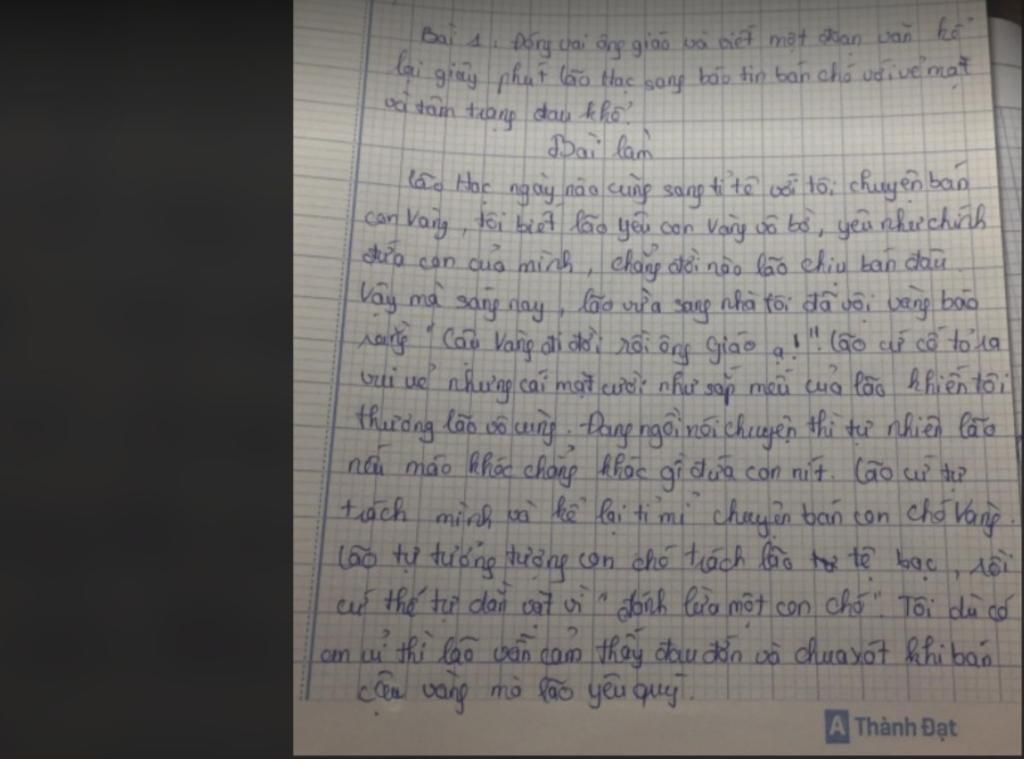 Bài 1. Đóng vai ông giáo và viết một đoạn văn kể
lại giây phút lão Hạc sang báo tin bán chó với vẻ mặt
và tâm trạng đau khổ.
Bài làm
Lão Hạc ngày nào cũng sang tỉ tê với tôi chuyện bán
con Vàng, tôi biết lão yêu con Vàng vô bờ, yêu như chính
đứa con của mình, chẳng đời nào lão chịu bán đâu.
Vậy mà sáng nay, lão vừa sang nhà tôi đã vội vàng báo
rằng "Cậu Vàng đi đời rồi ông Giáo ạ!". Lão cứ cố tỏ ra
vui vẻ nhưng cái mặt cười như sắp mếu của lão khiến tôi
thương lão vô cùng. Đang ngồi nói chuyện thì tự nhiên lão
nếu máo khóc chẳng khác gì đứa con nít. Lão cứ tự
trách mình và kể lại tỉ mỉ chuyện bán con chó Vàng.
Lão tự tưởng tượng con chó trách lão tệ bạc, rồi
cứ thế tự dằn vặt vì "đánh lừa một con chó". Tôi dù có
an ủi thì lão vẫn cảm thấy đau đớn và chua xót khi bán
cậu vàng mà lão yêu quý.
A Thành Đạt